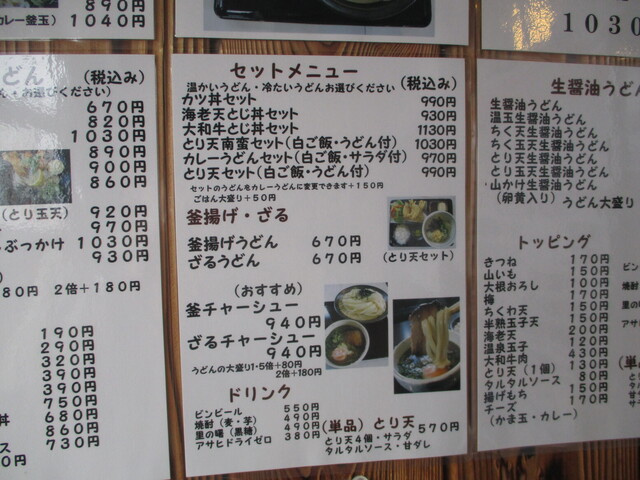 890円
カレー釜玉） 1040円
1030
うどん （税込み）
・お選びください）
670円
820円
1030円
890円
900円
860円
（とり玉天） 920円
970円
ぶっかけ 1030円
930円
80円 2倍＋180円
190円
290円
320円
390円
390円
750円
680円
860円
730円
セットメニュー
温かいうどん・冷たいうどんお選びください （税込み）
カツ丼セット 990円
海老天とじ丼セット 930円
大和牛とじ丼セット 1130円
とり天南蛮セット（白ご飯・うどん付） 1030円
カレーうどんセット（白ご飯・サラダ付） 970円
とり天セット（白ご飯・うどん付） 990円
セットのうどんをカレーうどんに変更できます＋150円
ごはん大盛り＋50円
釜揚げ・ざる
釜揚げうどん 670円
ざるうどん 670円
（とり天セット）
（おすすめ）
釜チャーシュー
940円
ざるチャーシュー
940円
うどんの大盛り1・5倍＋80円
2倍＋180円
ドリンク
ビンビール 550円
焼酎（麦・芋） 490円
里の曙（黒糖） 490円
アサヒドライゼロ 380円
（単品）とり天 570円
とり天4個・サラダ
タルタルソース・甘ダレ
生醤油うどん
生醤油うどん
温玉生醤油うどん
ちく天生醤油うどん
ちく玉天生醤油うどん
とり天生醤油うどん
とり玉天生醤油うどん
山かけ生醤油うどん
（卵黄入り） うどん大盛り
トッピング
きつね 170円
山いも 150円
大根おろし 100円
梅 170円
ちくわ天 150円
半熟玉子天 150円
海老天 200円
温泉玉子 120円
大和牛肉 430円
とり天（1個） 130円
タルタルソース 80円
揚げもち 150円
チーズ 170円
（かま玉・カレー）